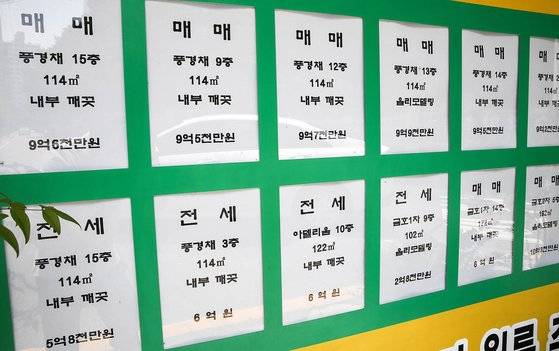 매 매
풍경채 15층
114㎡
내부 깨끗
9억6천만원
매 매
풍경채 9층
114㎡
내부 깨끗
9억5천만원
매 매
풍경채 12층
114㎡
내부 깨끗
9억7천만원
매 매
풍경채 13층
114㎡
올리모델링
9억9천만원
매 매
풍경채 14층
114㎡
내부 깨끗
9억5천만원
매
풍경채
114㎡
내부
전 세
풍경채 15층
114㎡
내부 깨끗
5억8천만원
전 세
풍경채 3층
114㎡
내부 깨끗
6 억 원
전 세
아델리움 10층
122㎡
내부 깨끗
6 억 원
전 세
금호1차 9층
102㎡
올리모델링
2억8천만원
매 매
금호1차 14층
내부 깨끗
6 억 원
매
금호1차